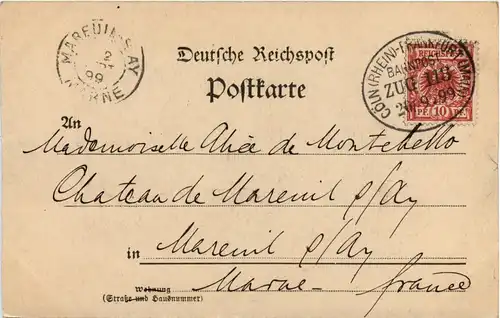 MAREUIL-S-AY
2
99
MARNE
CÖLN (RHEIN)-FRANKFURT (MAIN)
BAHNPOST
ZUG
9.99
PF 10 PF
Deutsche Reichspost
Postkarte
An
Mademoiselle Alice de Montebello
Chateau de Mareuil s/Ay
in Mareuil s/Ay
Marne - france
Wohnung
(Straße und Hausnummer)